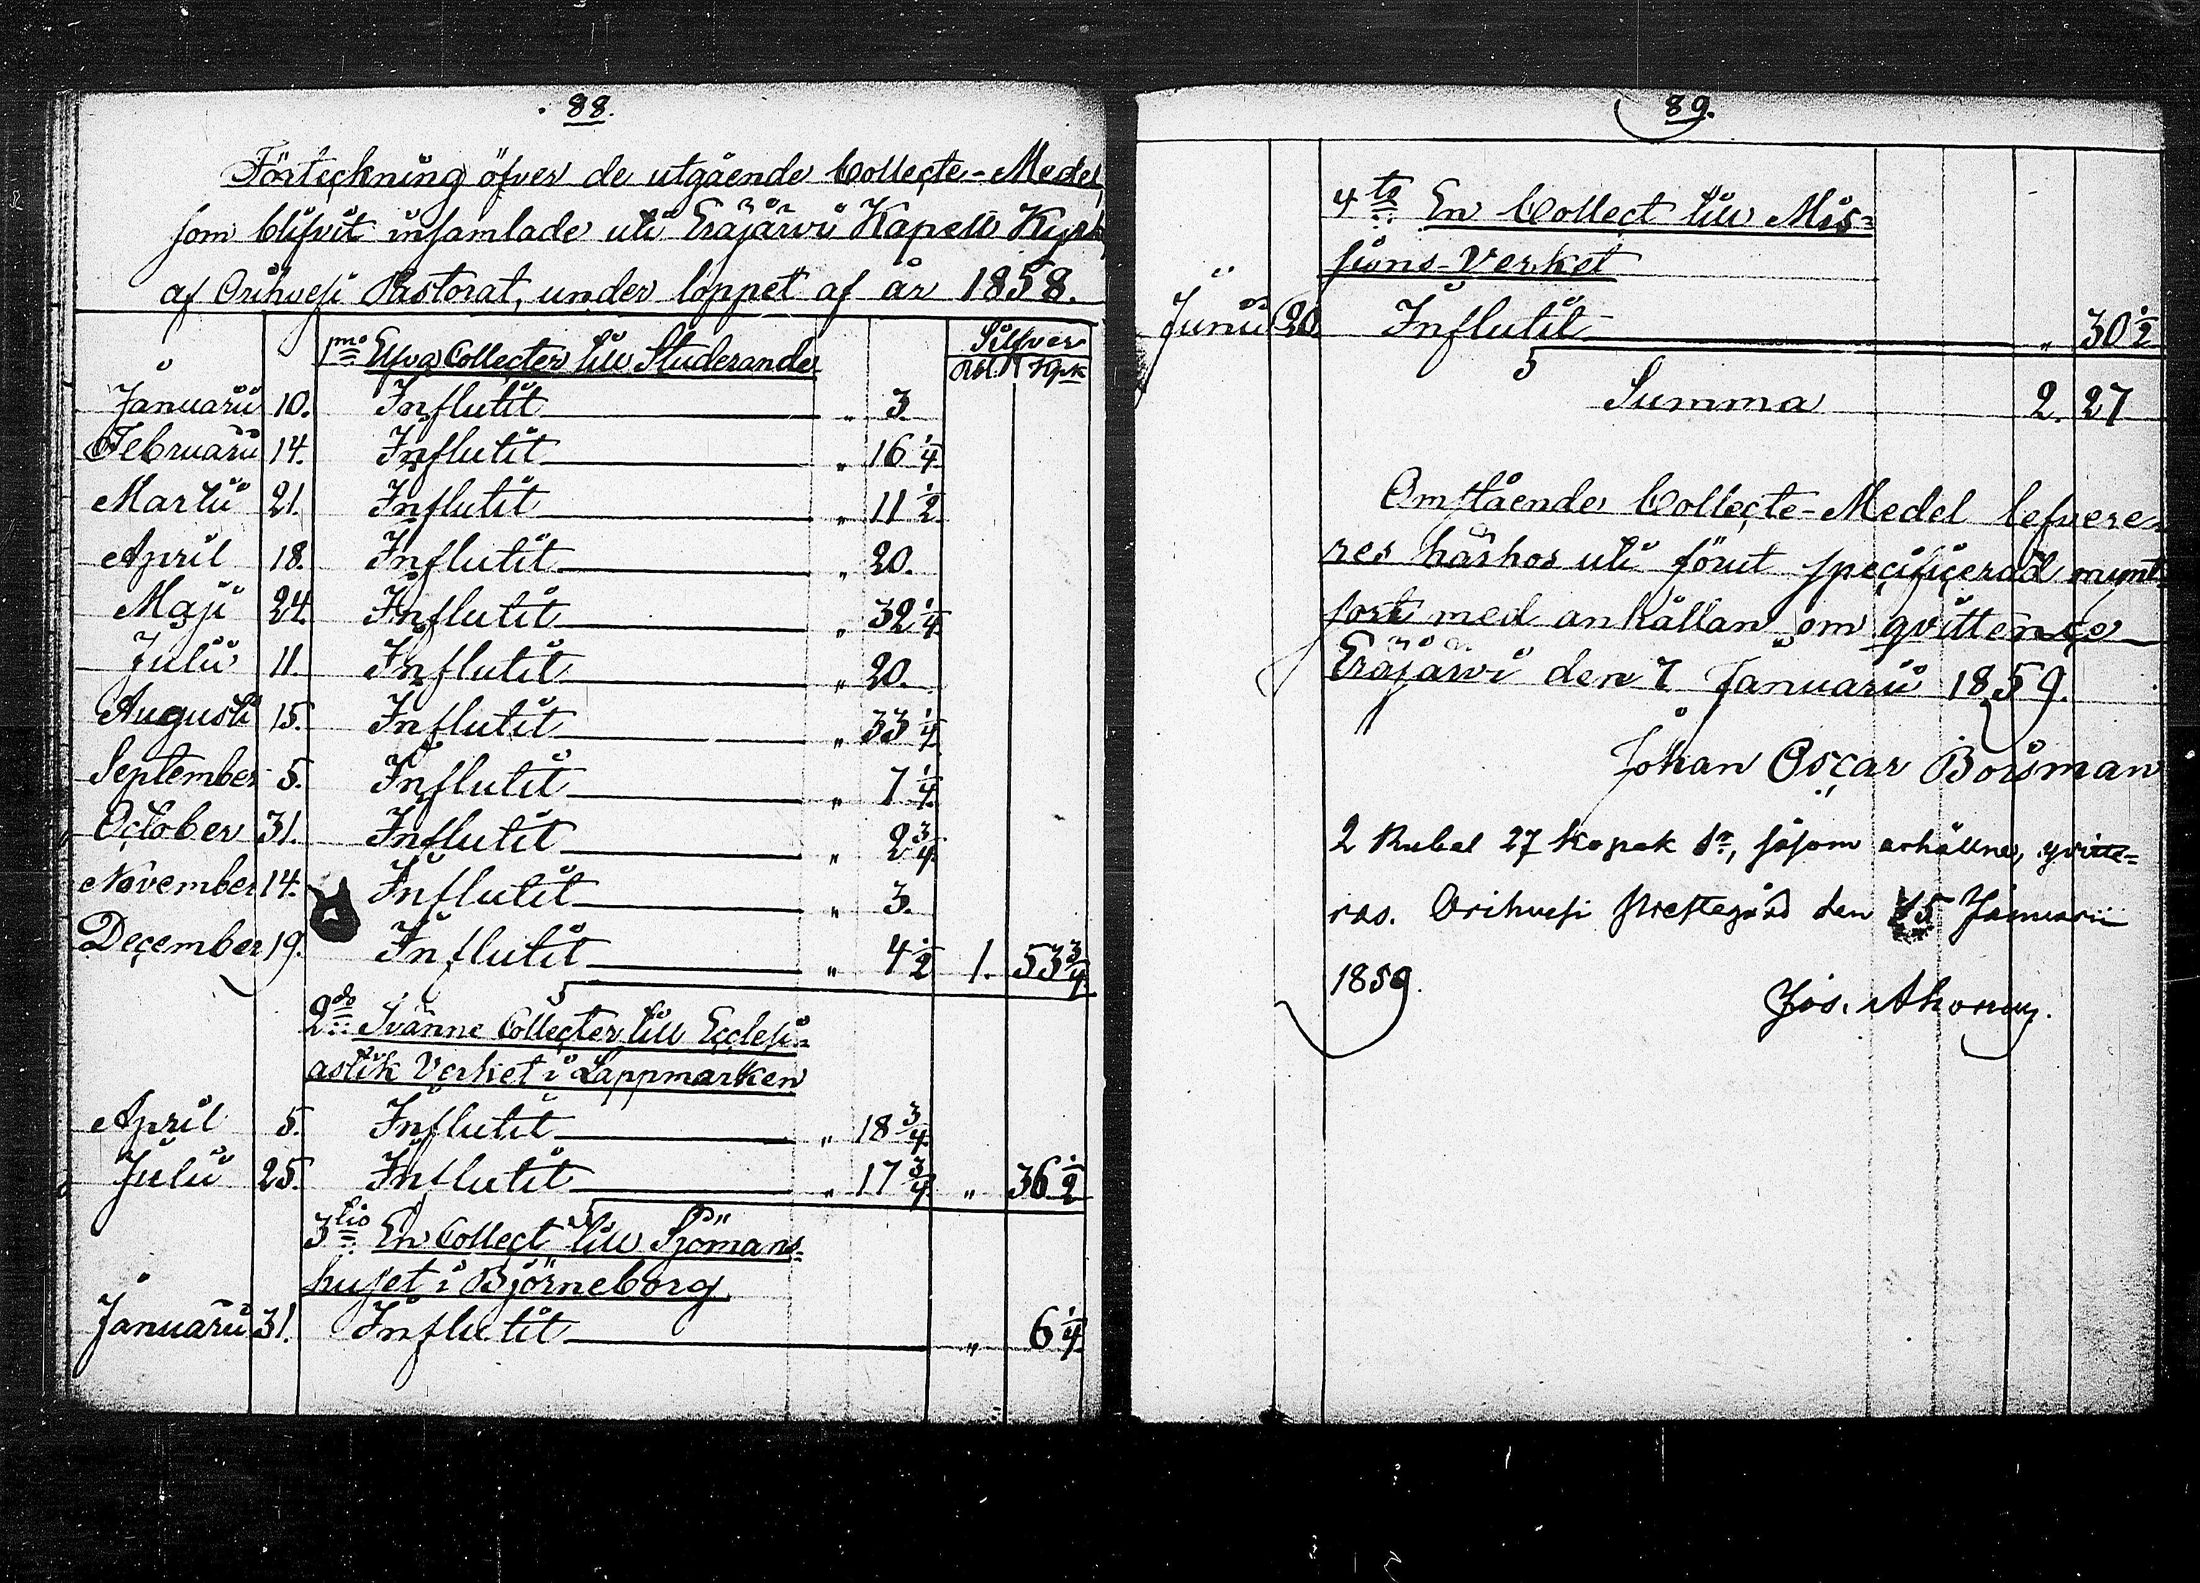 88.
Förteckning öfver de utgående Collecte-Medel
som blifvit insamlade uti Eräjärvi Kapell Kyrk
af Orihvesi Pastorat, under loppet af år 1858.
1mo Elfva Collecter till Studerande Silfver
Rbl. Kpk
Januarii 10. Influtit " 3
Februarii 14. Influtit " 16 1/4
Martii 21. Influtit " 11 1/2
April 18. Influtit " 20.
Maji 24. Influtit " 32 1/4
Julii 11. Influtit " 20.
Augusti 15. Influtit " 33 1/4
September 5. Influtit " 7 1/4
October 31. Influtit " 2 3/4
November 14. Influtit " 3.
December 19. Influtit " 4 1/2 1. 53 3/4
2do Tvänne Collecter till Ecclesi=
astik Verket i Lappmarken
April 5. Influtit " 18 3/4
Julii 25. Influtit " 17 3/4 " 36 1/2
3tio En Collect till Sjömans=
huset i Björneborg
Januarii 31. Influtit " 6 1/4
89.
4to En Collect till Mis=
sions-Verket
Junii 20. Influtit " 30 1/2
Summa 2. 27
Omstående Collecte-Medel lefvere=
res härhos uti förut specificerad mynt=
sort med anhållan om qvittence
Eräjärvi den 7 Januarii 1859.
Johan Oscar Boisman
2 Rubel 27 Kopek Sr, såsom erhållne, qvitte=
ras. Orihvesi Prestegård den 15 Januarii
1859.
Jos.